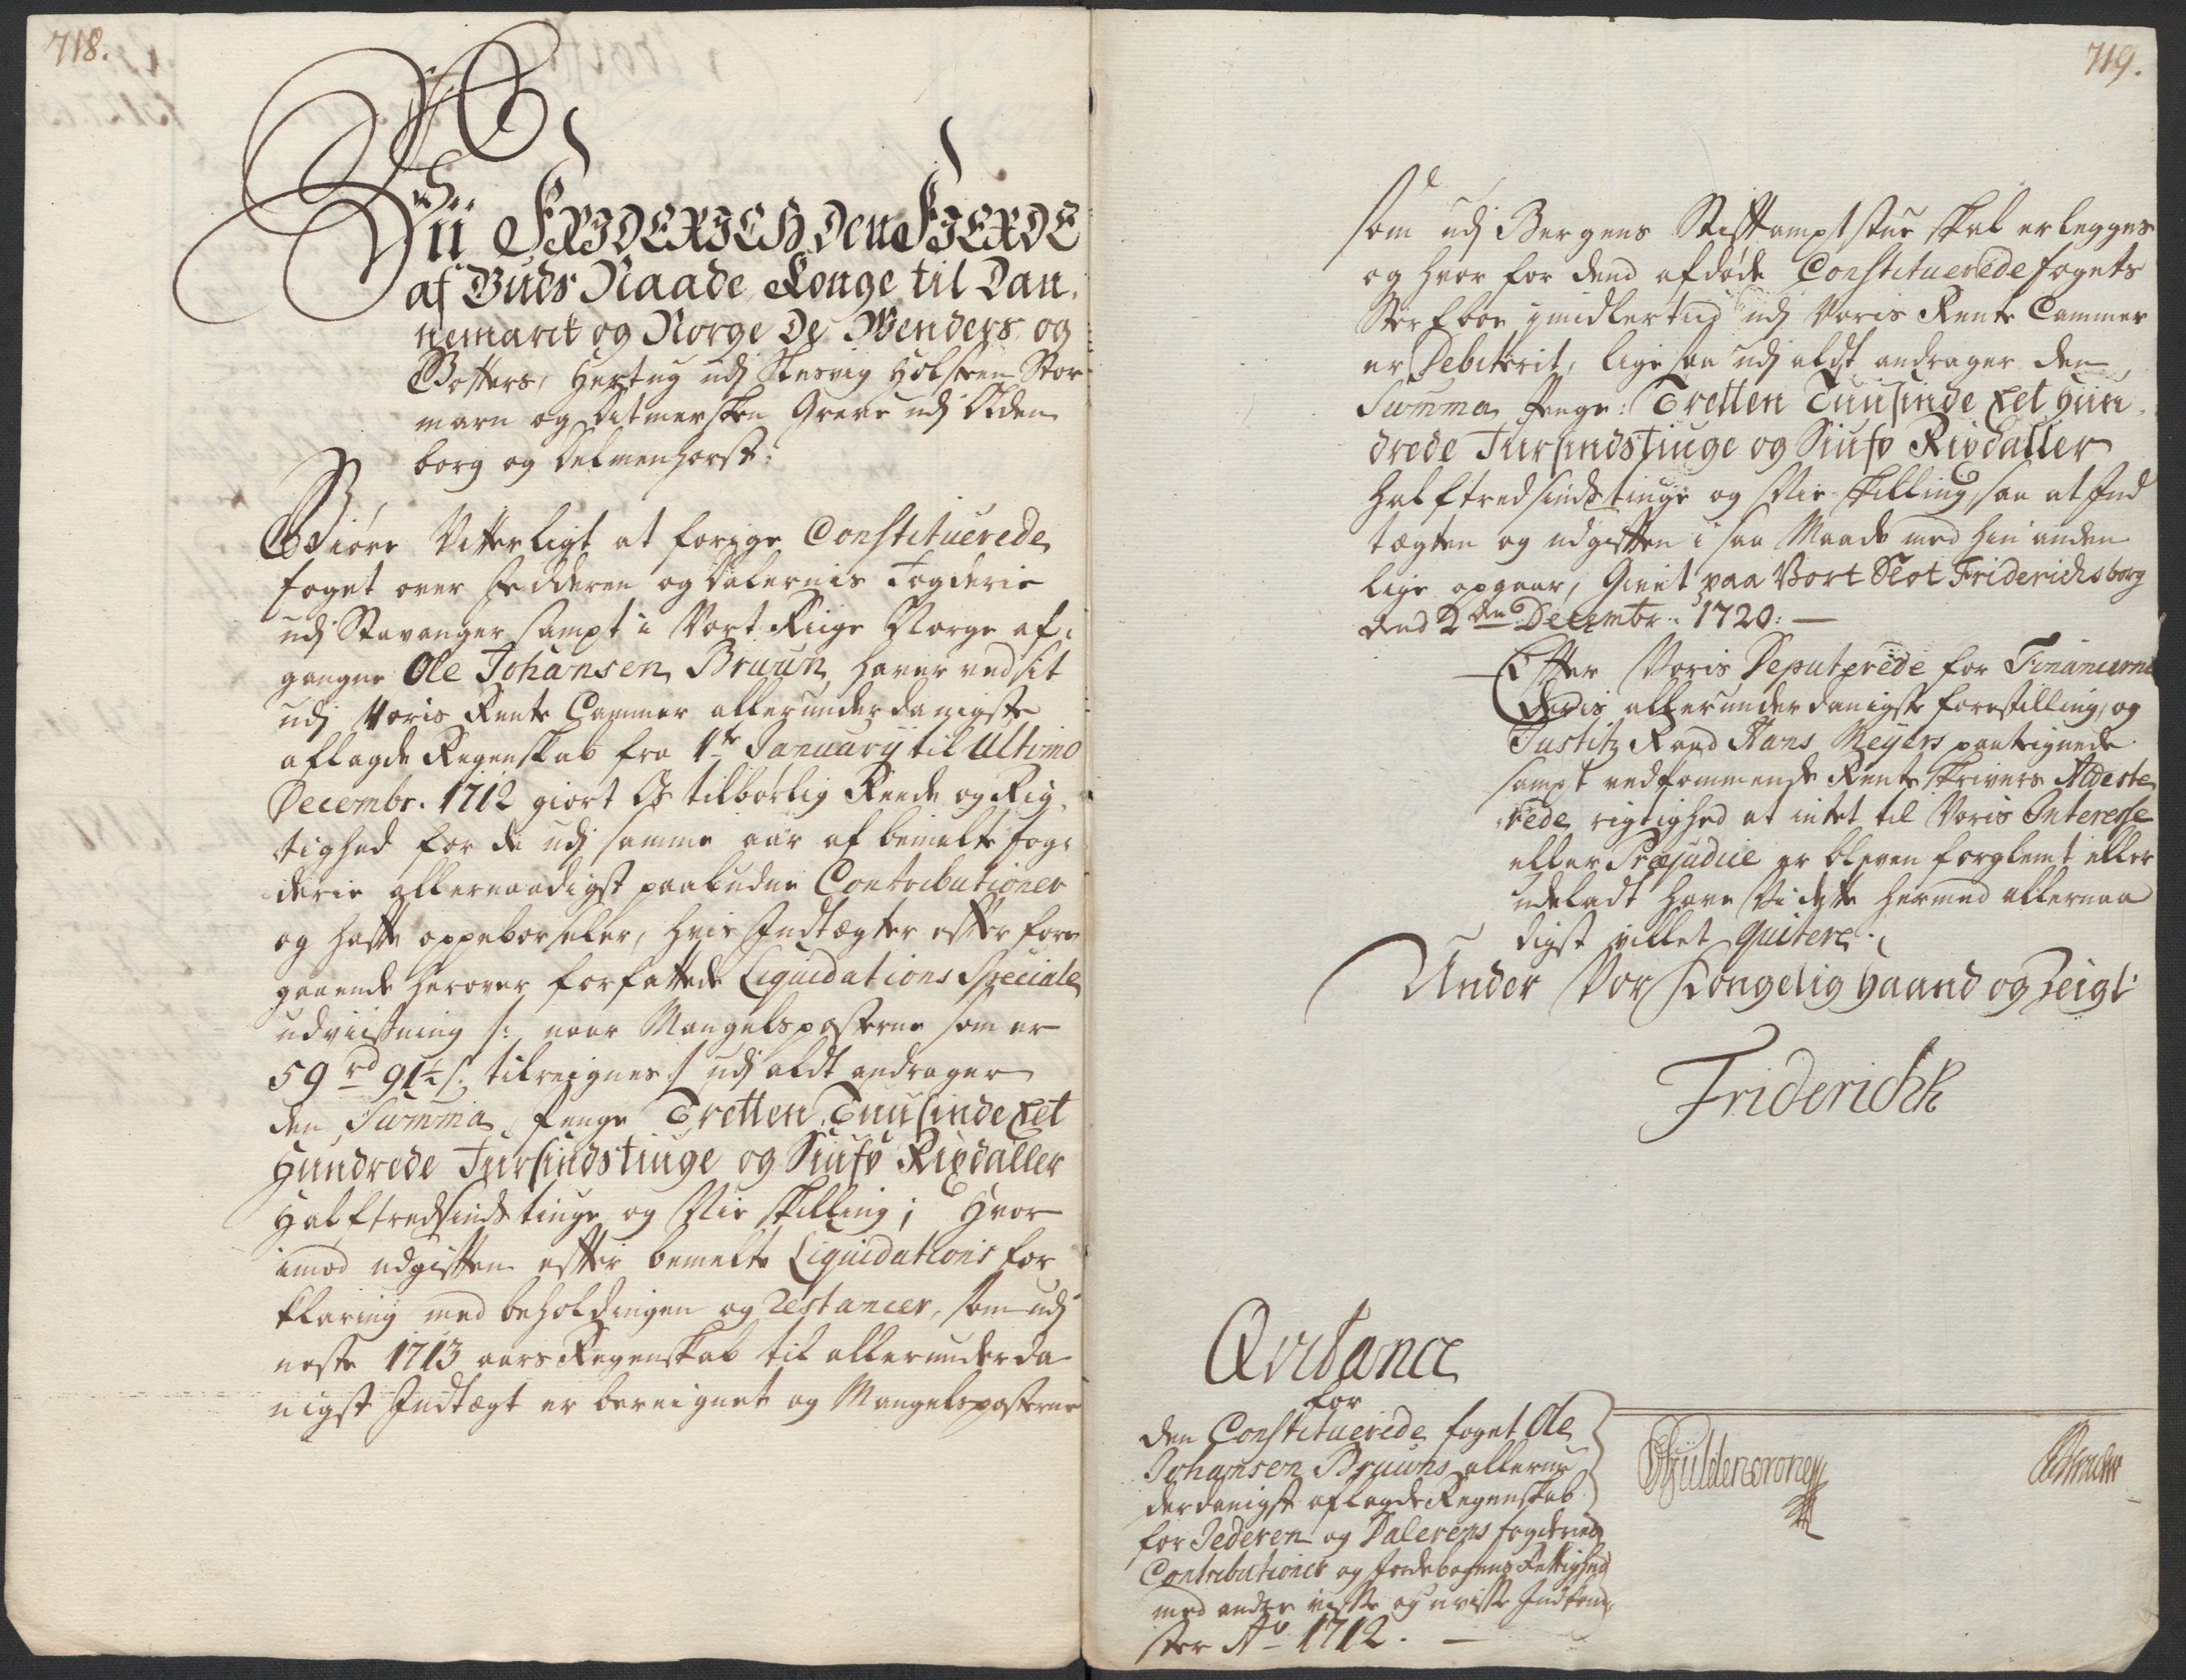 718.
Vii FRIDERICH Den FIERDE
af Guds Naade Konge til Dan,
nemarck og Norge De Wenders og
Gotters, Hertug udj Slesvig Holsteen Stor
marn og Ditmersken Greve udj Olden
borg og Delmenhorst:
Giøre Vitterligt at forrige Constituerede
foget over Jedderen og Dalernis Fogderie
udj Stavanger Ampt i Vort Riige Norge af,
gangne Ole Johansen Bruun haver ved sit
udj Voris Rente Cammer allerunderdanigste
aflagde Regenskab fra 1te January til Ultimo
Decembr. 1712 giort Os tilbørlig Reede og Rig,
tighed for de udj samme aar af bemelte fog,
derie allernaadigst paabudne Contributioner
og hafte oppebørseler, hvis Indtægter efter fore
gaaende herover forfattede Liquidations Speciale
udviisning /: naar Mangelsposterne som er
59 rd 91½ s. tilreignes :/ udj aldt andrager
den Summa Penge Tretten Tuusinde Eet
Hundrede Fiirsindstiuge og Siufv Rixdaller
Halftredsindstiuge og Nie skilling; Hvor
imod udgiften efter bemelte Liquidations for
klaring med beholdingen og Restancer, som udj
neste 1713 aars Regenskab til allerunderda
nigst Indtægt er bereignet og Mangelsposterne
719.
som udj Bergens Stiftamptstue skal erlegges
og hvor for dend afdøde Constituerede fogets
Sterfboe imidlertid udj Voris Rente Cammer
er Debiterit, lige saa udj aldt andrager den
Summa Penge: Tretten Tuusinde Eet Hun,
drede Fiirsindstiuge og Siufv Rixdaller
Halftredsindstiuge og Nie skilling, saa at Ind
tægten og udgiften i saa Maade med hin anden
lige opgaar, Givet paa Vort Slot Friderichsborg
dend 2den Decembr: 1720: —
Efter Voris Deputerede for Financerne
Deris allerunderdanigste forestilling, og
Justitz Raad Hans Meyers paateignede
sampt vedkommende Renteskrivers Atteste
rede rigtighed at intet til Voris Interesse
eller Præjudice er bleven forglemt eller
udeladt have Vi dette hermed allernaa
digst villet quitere.
Under Vor Kongelig Haand og Zeigl:
Friderich R
Qvitance
for
den Constituerede foget Ole
Johansen Bruuns allerun
derdanigst aflagde Regenskab
for Jederen og Dalerens fogderies
Contributioner og Jordebogens Rettighed
med andre visse og uvisse Indkom,
ster Ao 1712. —
Güldencrone